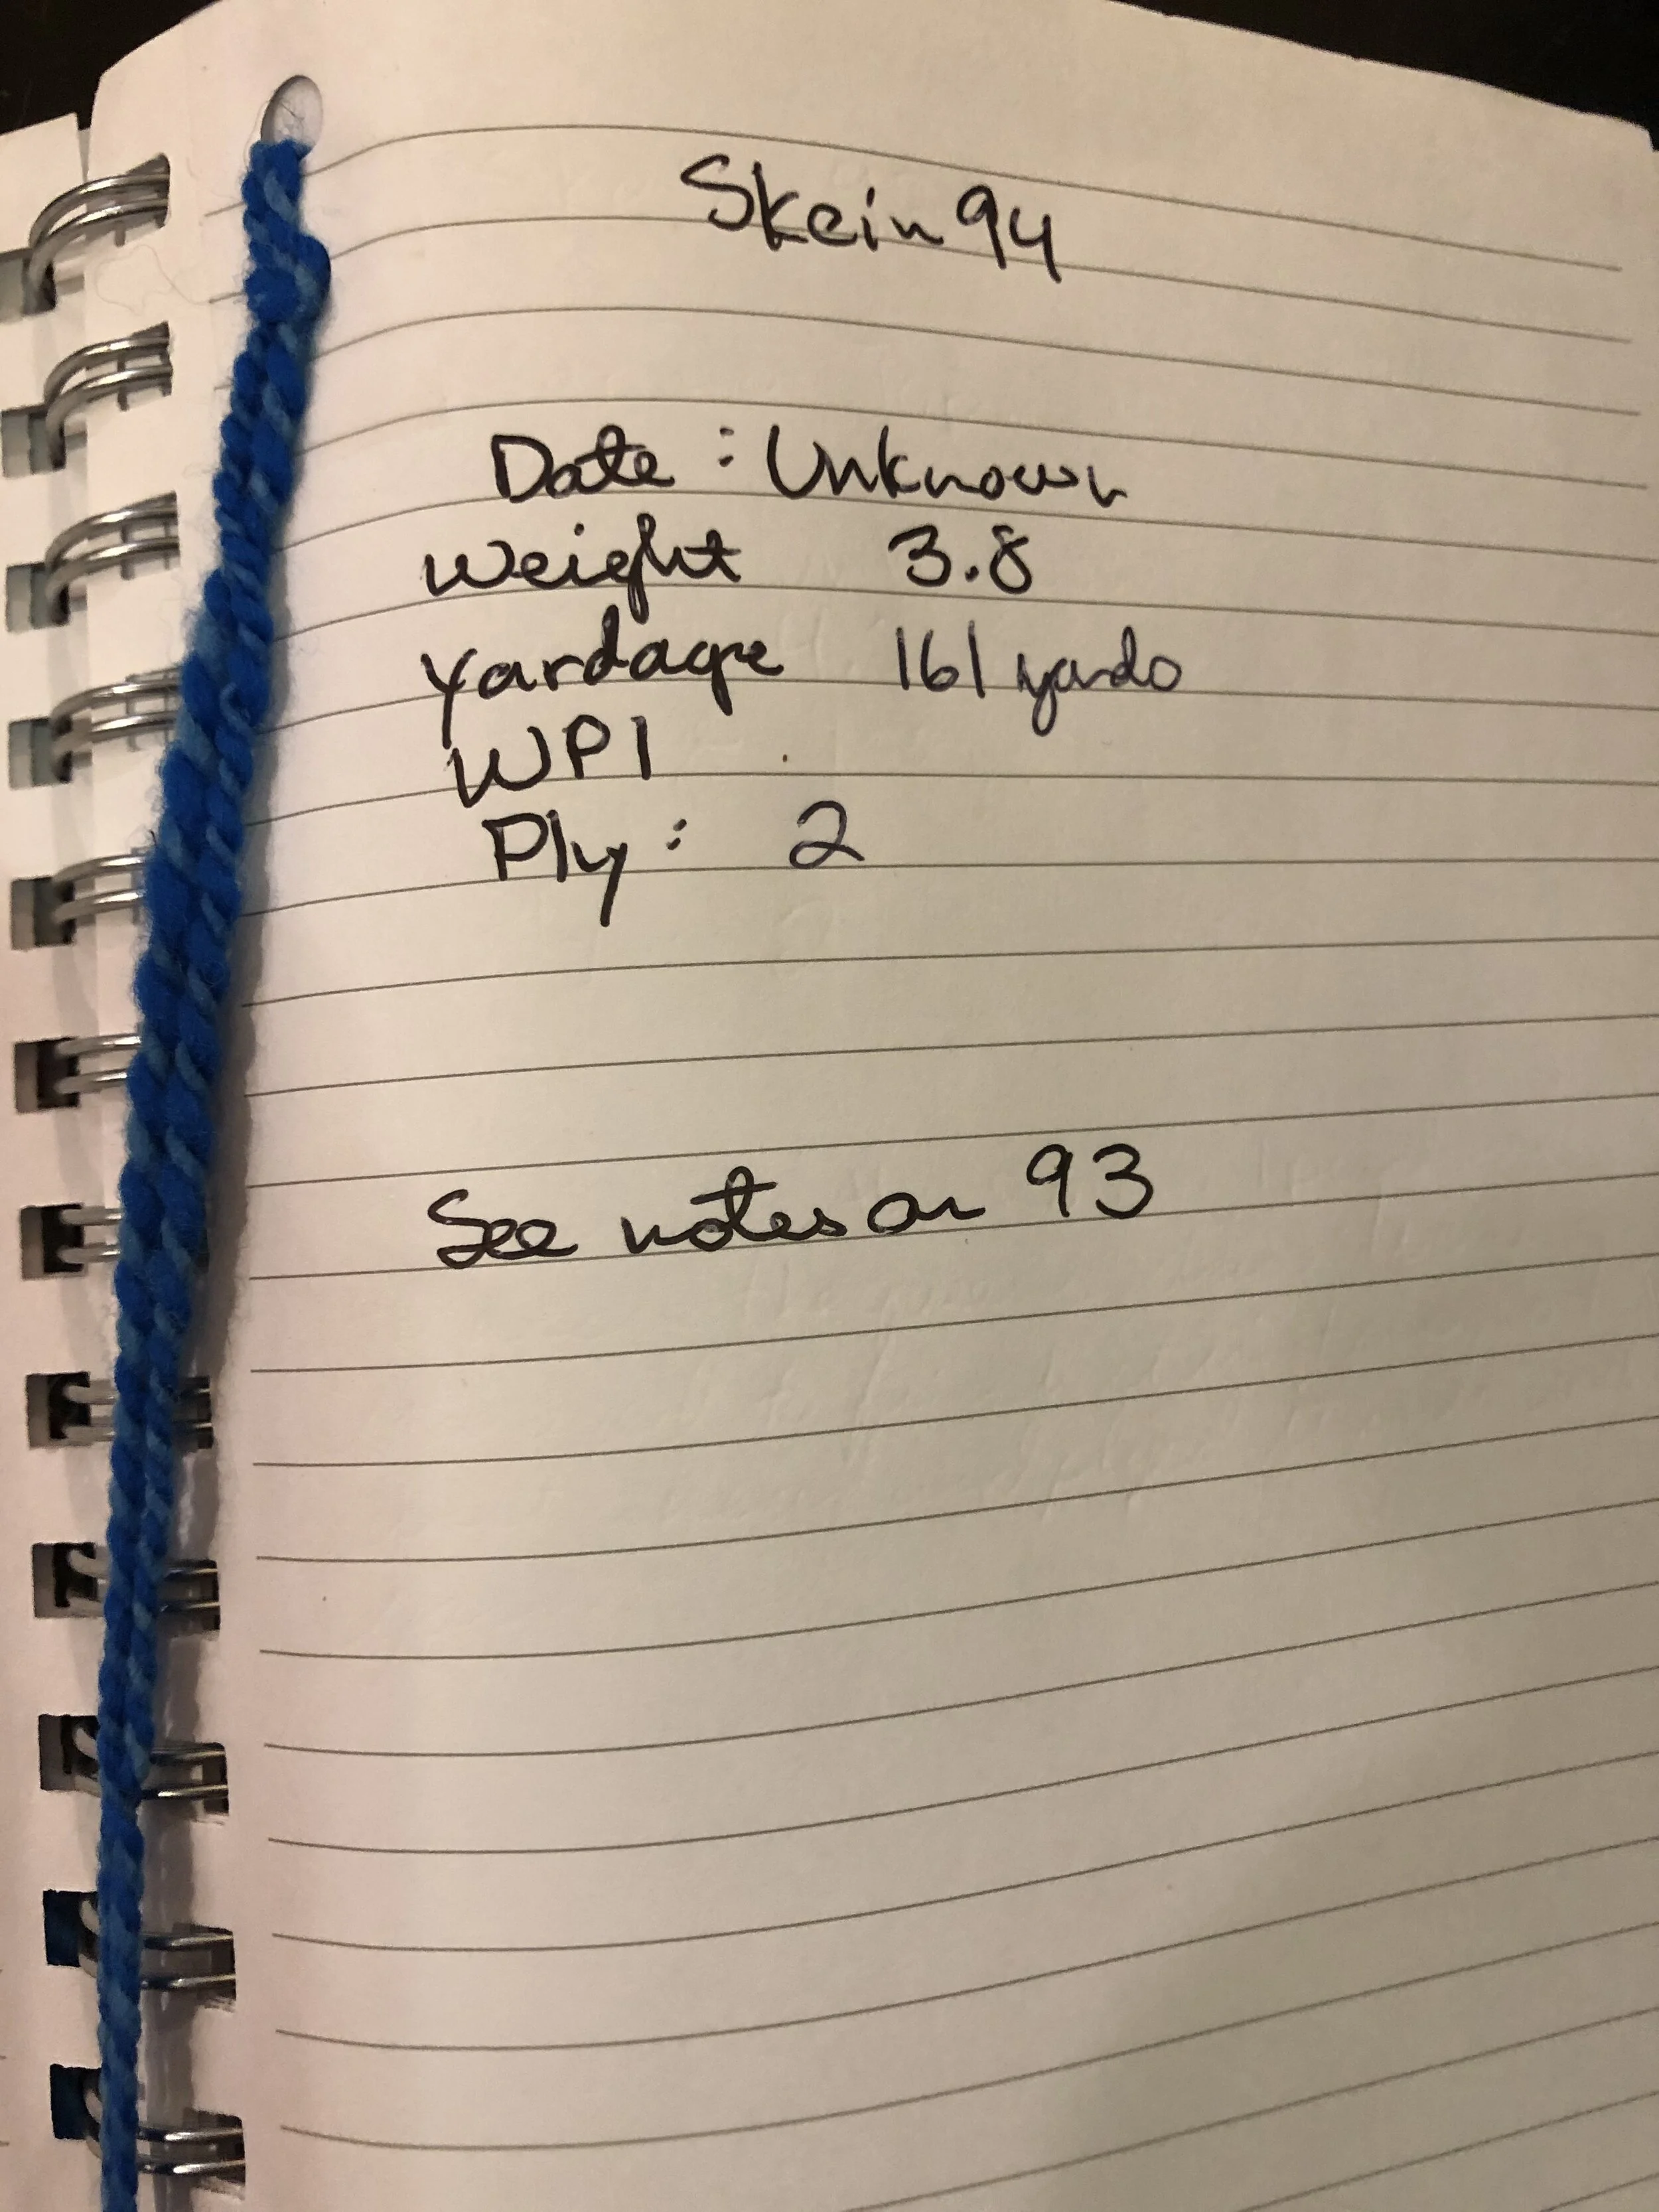 Skein 94
Date : Unknown
Weight 3.8
Yardage 161 yards
WPI
Ply : 2
See notes on 93